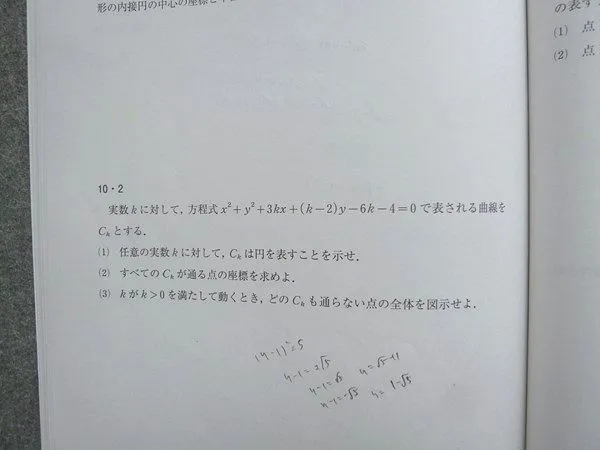 形の内接円の中心の座標と
の表す
(1) 点
(2) 点
10・2
実数kに対して，方程式x²+y²+3kx+(k−2)y−6k−4=0で表される曲線を
Cₖとする．
(1) 任意の実数kに対して，Cₖは円を表すことを示せ．
(2) すべてのCₖが通る点の座標を求めよ．
(3) kがk>0を満たして動くとき，どのCₖも通らない点の全体を図示せよ．